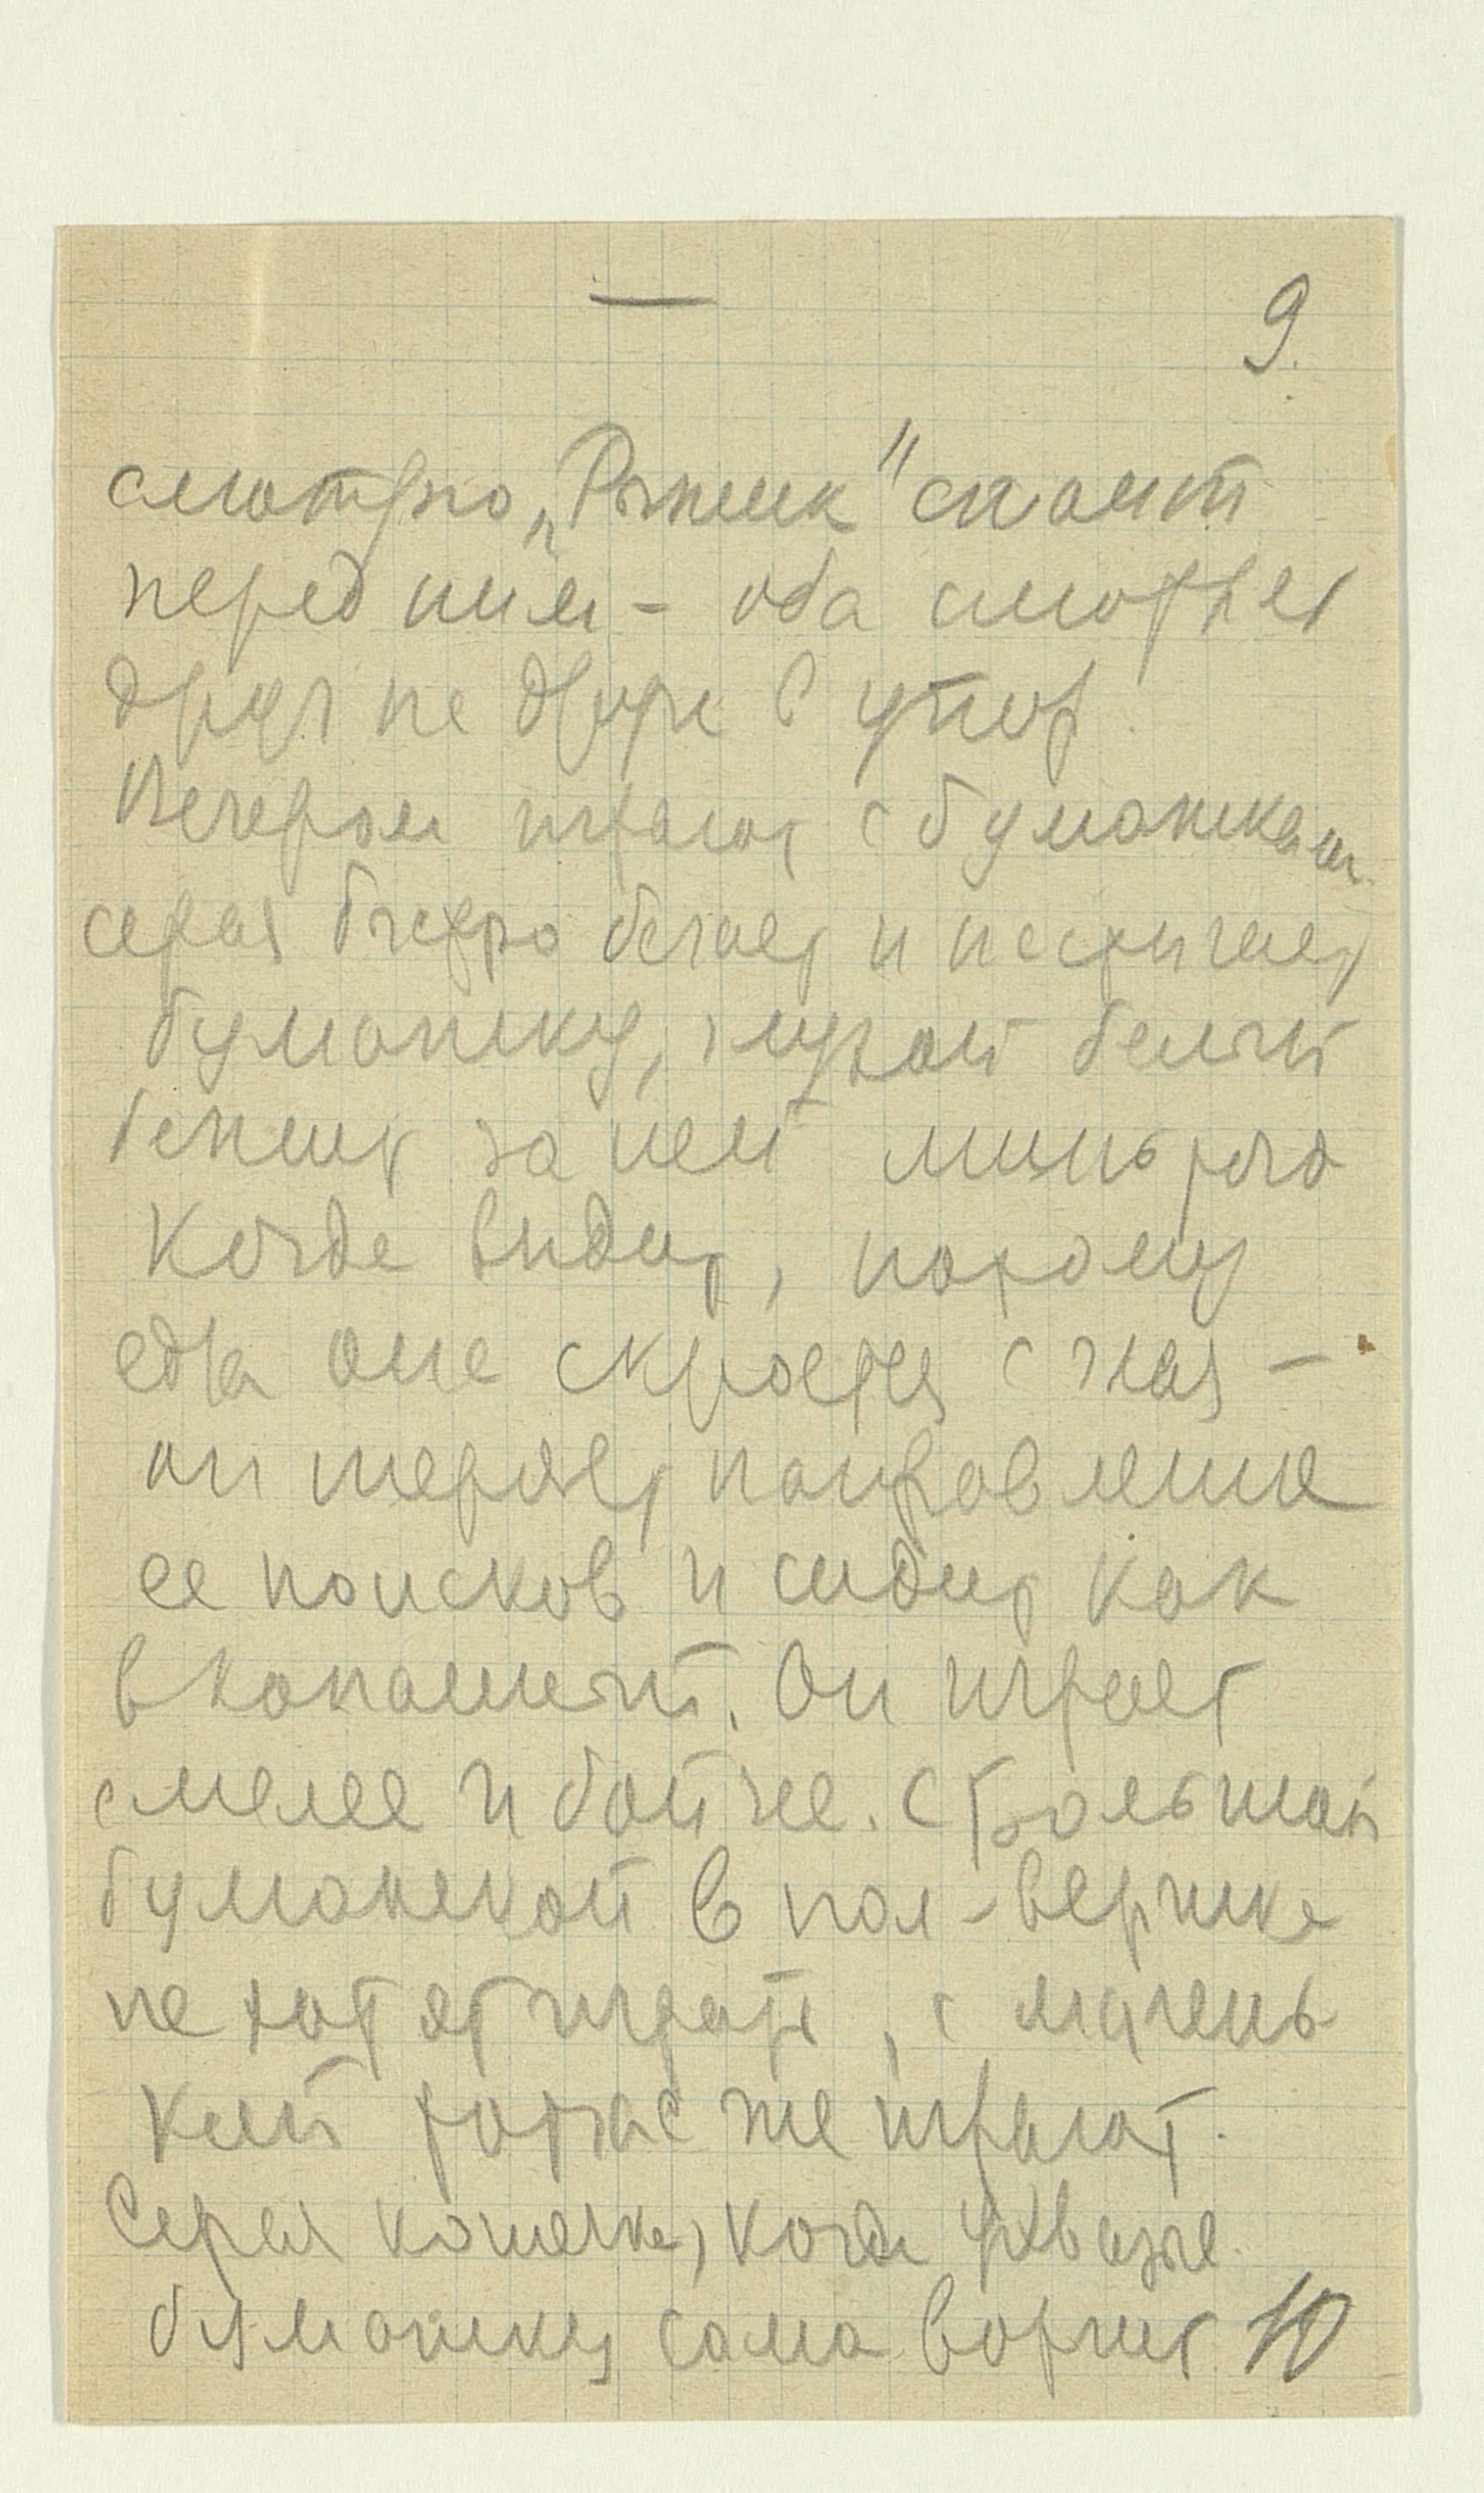 —
9.
смотрю „Рыжик" стоит
перед ним – оба смотрят
друг на друга в упор.
Вечером играют с бумажками
серая быстро бегает и настигает
бумажку, глухой белый
бежит за ней лишь того
когда видит, потому
едва она скроется с глаз –
он теряет направление
ее поисков и сидит как
вкопанный. Он играет
смелее и бойчее. С большой
бумажкой в пол-вершка
не хотят играть, с малень
кой тотчас же играют.
Серая кошечка, когда ухватит
бумажку сама ворчит
10